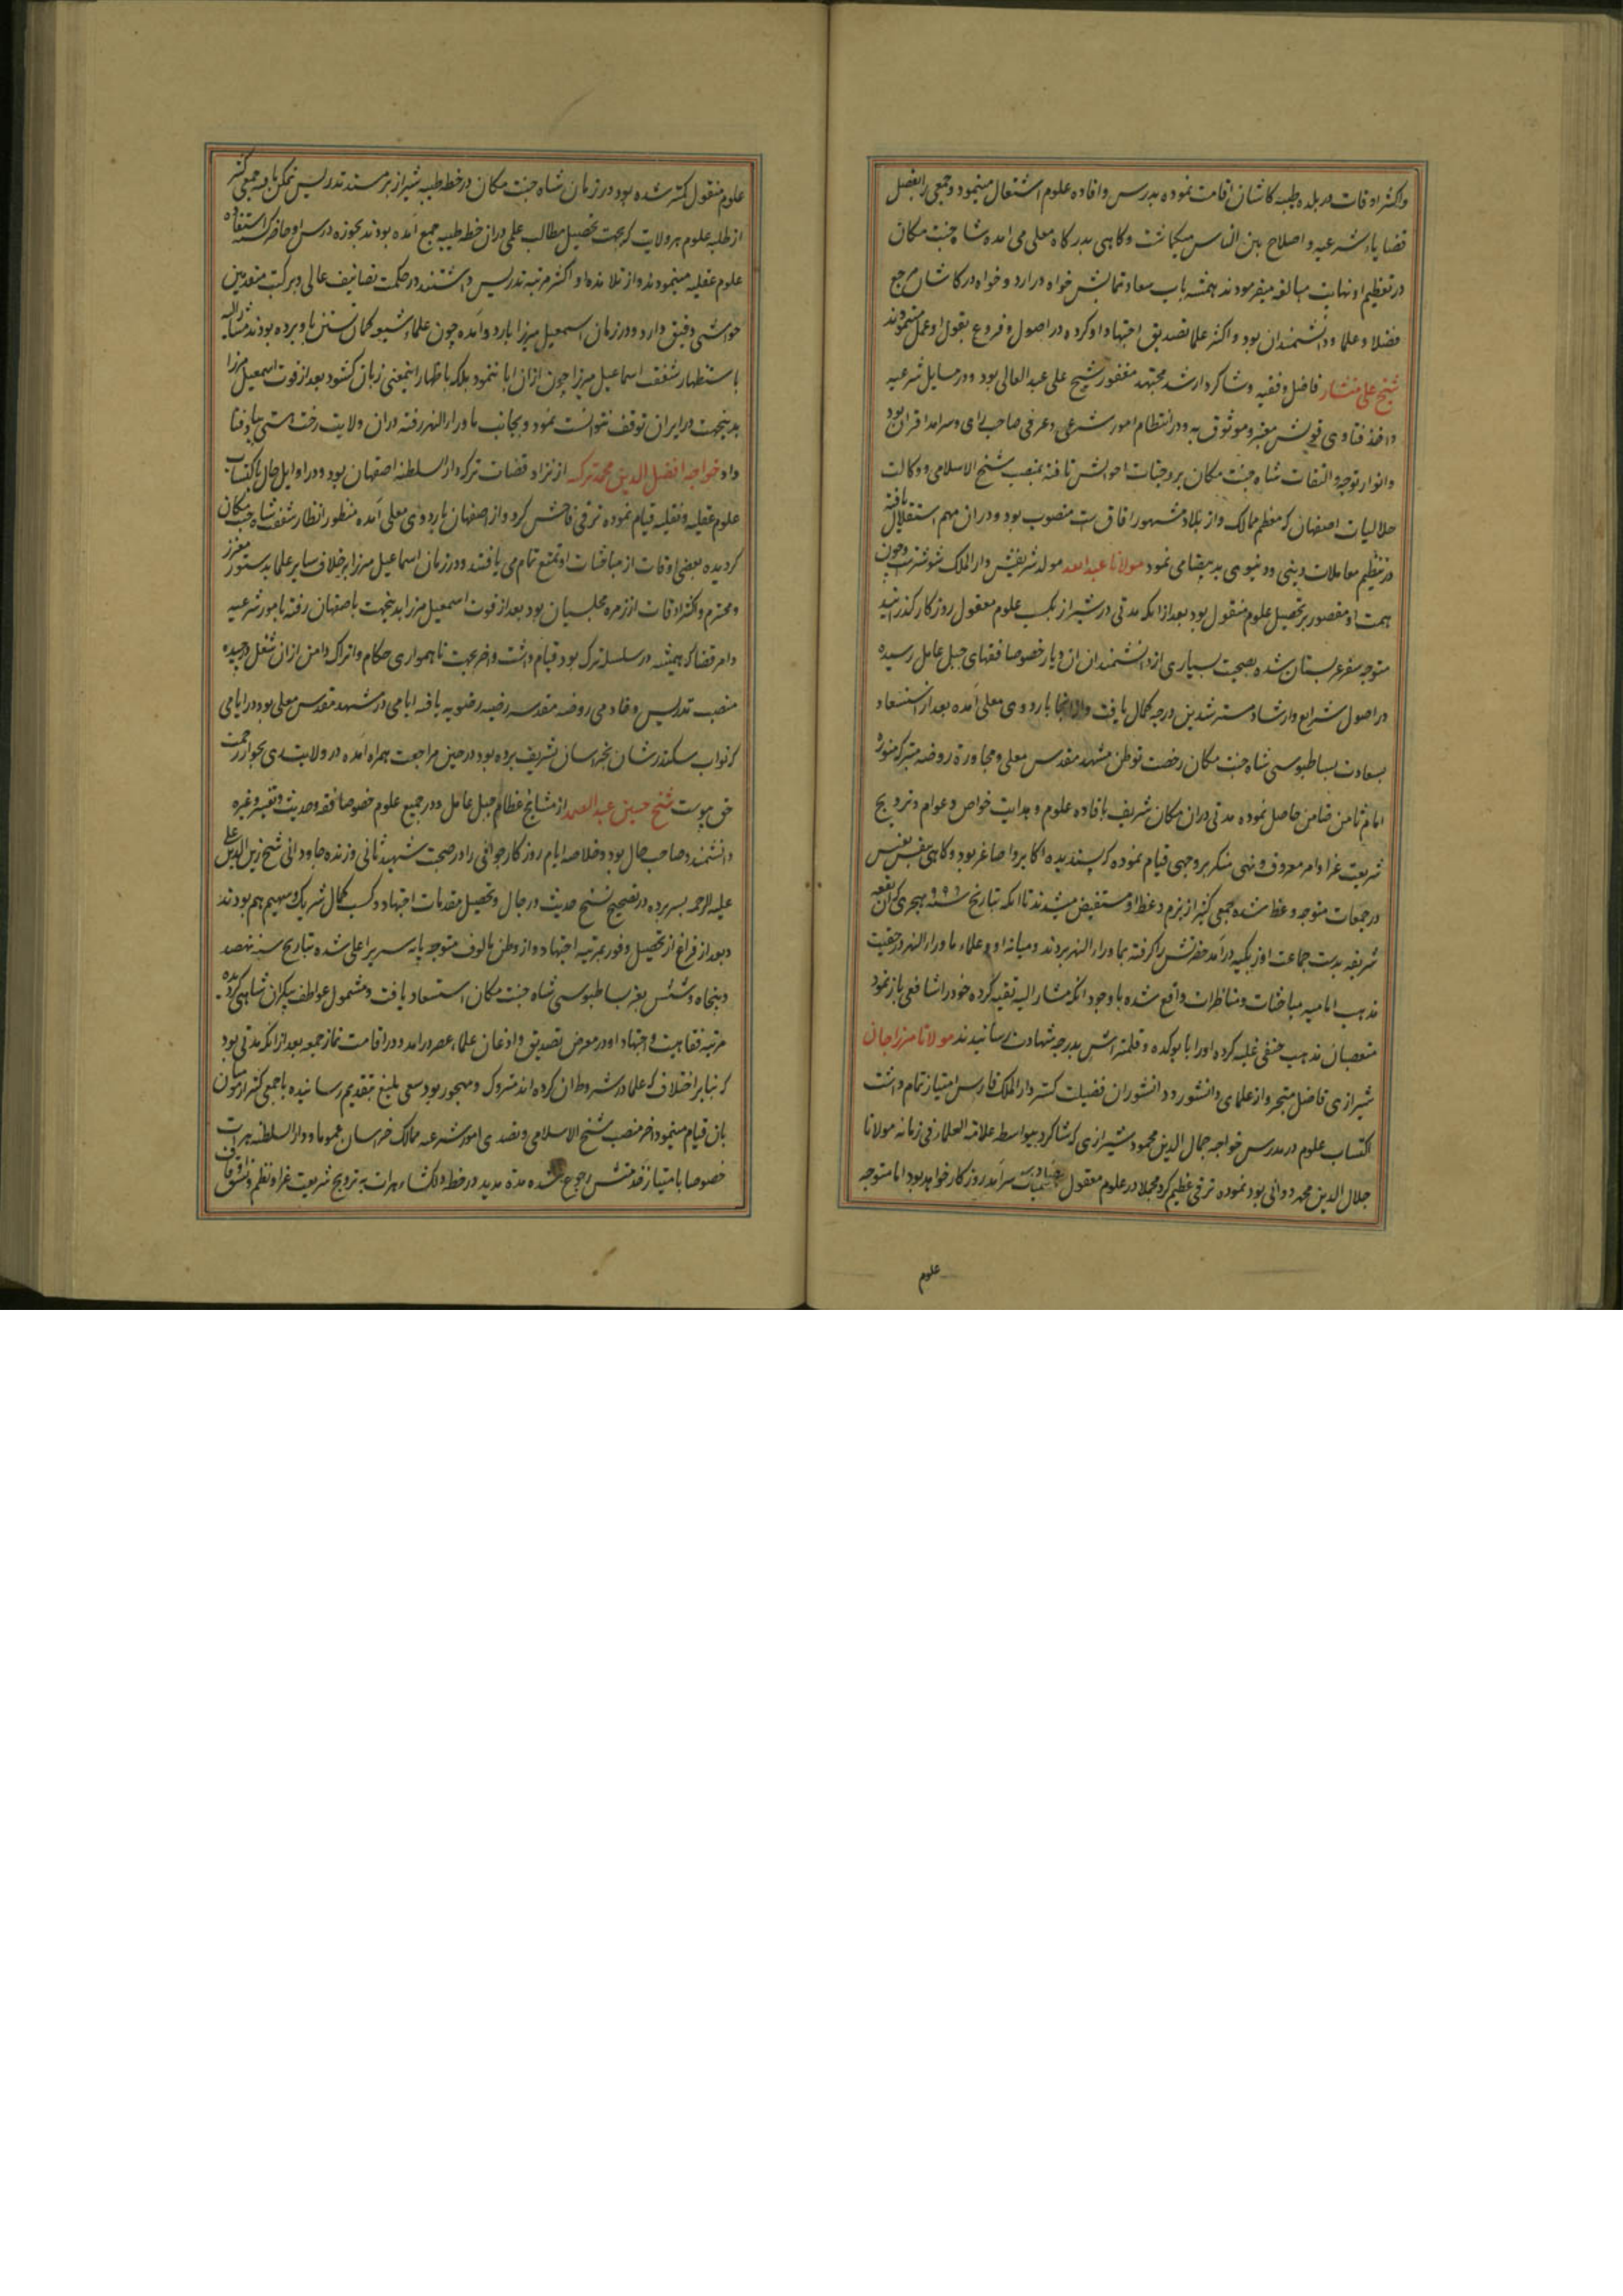 واکثر اوقات در بلده طیبه کاشان اقامت نموده بدرس وافاده علوم اشتغال مینمود وجمعی را بفصل
قضایاء شرعیه و اصلاح بین الناس میگماشت وکاهی بدرکاه معلی می امده شاه جنت مکان
در تعظیم او نهایت مبالغه میفرمودند همیشه باب سعادتمابش خواه در اردو خواه در کاشان مرجع
فضلا و علما و دانشمندان بود واکثر علما تصدیق اجتهاد او کرده در اصول و فروع بقول او عمل مینمودند
شیخ علی منشار فاضل وفقیه وشاکرد ارشد مجتهد مغفور شیخ علی عبد العالی بود ودر مسایل شرعیه
واخذ فتاوی قویش معتبر وموثوق به ودر انتظام امور شرعی وعرفی صاحب رای وسرامد اقران بود
وانوار توجه والتفات شاه جنت مکان بر وجنات احوالش تافته بمنصب شیخ الاسلامی ووکالت
حلالیات اصفهان که معظم ممالک واز بلاد مشهور افاق ست منصوب بود ودران مهم استقلال یافته
در تنظیم معاملات دینی ودنیوی ید بیضا می نمود مولانا عبدالله مولد شریفش دار الملک شوشتر ست وچون
همت او مقصور بر تحصیل علوم منقول بود بعد از انکه مدتی در شیراز بکسب علوم معقول روزکار کذرانید
متوجه سفر عربستان شده بصحبت بسیاری از دانشمندان ان دیار خصوصا فقهای جبل عامل رسیده
در اصول شرایع وارشاد مسترشدین درجه کمال یافت وازانجا باردوی معلی آمده بعد از استسعاد
بسعادت بساطبوسی شاه جنت مکان رخصت توطن مشهد مقدس معلی ومجاورة روضه متبرکه منوره
امام ثامن ضامن حاصل نموده مدتی دران مکان شریف بافاده علوم وهدایت خواص وعوام وترویج
شریعت غرا وامر معروف ونهی منکر بر وجهی قیام نموده که پسندیده اکابر واصاغر بود وکاهی بنفس نفیس
در جمعات متوجه وعظ شده جمعی کثیر از بزم وعظ او مستفیض میشدند تا انکه بتاریخ سنه ۹۹۶ هجری که ان بقعه
شریفه بدست جماعت اوزبکیه درآمد حضرتش را کرفته بماوراء النهر بردند ومیانه او وعلماء ماوراء النهر در حقیت
مذهب امامیه مباحثات ومناظرات واقع شده باوجود انکه مشار الیه تقیه کرده خود را شافعی باز نمود
متعصبان مذهب حنفی غلبه کرده اورا بدرجه شهادت رسانیدند مولانا میرزا جان
شیرازی فاضل متبحر واز علمای دانشور ودانشوران فضیلت کستر دار الملک فارس امتیاز تمام داشت
اکتساب علوم در مدرس خواجه جمال الدین محمود شیرازی که شاکرد بیواسطه علامة العلمائی فی زمانه مولانا
جلال الدین محمد دوانی بود نموده ترقی عظیم کرد مجملا در علوم معقول سرآمد روزکار خواهد بود اما متوجه
علوم
علوم منقول کمتر شده بود در زمان شاه جنت مکان در خطه طیبه شیراز بر مسند تدریس تمکن یافته جمعی کثیر
از طلبه علوم هر ولایت که بجهت تحصیل مطالب علمی دران خطه طیبه جمع آمده بودند بحوزه درس او حاضر کشته استفاده
علوم عقلیه مینمودند واز تلامذه او اکثر مرتبه تدریس داشتند در حکمت تصانیف عالی وبر کتب متقدمین
حواشی دقیق دارد ودر زمان اسمعیل میرزا باردو آمده چون علماء شیعه کمان تسنن باو برده بودند مشار الیه
باستظهار شفقت اسماعیل میرزا چون ازان ابا ننمود بلکه باظهار اینمعنی زبان کشود بعد از فوت اسمعیل میرزا
بدینجهت در ایران توقف نتوانست نمود وبجانب ماوراء النهر رفته دران ولایت رخت هستی بباد فنا
داد خواجه افضل الدین محمد ترکه از نژاد قضات ترکه دار السلطنه اصفهان بود ودر اوایل حال باکتساب
علوم عقلیه ونقلیه قیام نموده ترقی فاحش کرد واز اصفهان باردوی معلی آمده منظور انظار شفقت شاه جنت مکان
کردیده بعضی اوقات از مباحثات او تمتع تمام می یافتند ودر زمان اسماعیل میرزا بر خلاف سایر علما بدستور معزز
ومحترم واکثر اوقات از زمره مجلسیان بود بعد از فوت اسمعیل میرزا بدینجهت باصفهان رفته بامور شرعیه
وامر قضا که همیشه در سلسله ترکه بود قیام داشت واخر بجهت ناهمواری حکام واتراک دامن ازان شغل درچیده
منصب تدریس وخادمی روضه مقدسه رضیه رضویه یافته ایامی در مشهد مقدس معلی بود در ایامی
که نواب سکندر شان بخراسان تشریف برده بود در حین مراجعت همراه آمده در ولایت ری بجوار رحمت
حق پیوست شیخ حسین عبدالصمد از مشایخ عظام جبل عامل ودر جمیع علوم خصوصا فقه وحدیث وتفسیر وغیره
دانشمند وصاحب حال بود وخلاصه ایام روزکار جوانی را در صحبت شهید ثانی وزنده جاودانی شیخ زین الدین علی
علیه الرحمه بسر برده در تصحیح نسخ حدیث ورجال وتحصیل مقدمات اجتهاد وکسب کمال شریک وسهیم هم بودند
وبعد از فراغ از تحصیل وفوز بمرتبه اجتهاد واز وطن مالوف متوجه پایه سریر اعلی شده بتاریخ سنه نهصد
وپنجاه وشش بعز بساطبوسی شاه جنت مکان استسعاد یافت ومشمول عواطف بیکران شاهی کردیده
مرتبه فقاهت واجتهاد او در معرض تصدیق واذعان علماء عصر درامد ودر اقامت نماز جمعه بعد از انکه مدتی بود
که بنابر اختلاف که علما در شروط ان کرده اند متروک ومهجور بود سعی بلیغ بتقدیم رسانیده با جمعی کثیر از مومنان
بان قیام مینمود اخر منصب شیخ الاسلامی وتصدی امور شرعیه ممالک خراسان عموما ودار السلطنه هرات
خصوصا بامتیاز رجوع شده مدة مدید در خطه دلکشاء هرات به ترویج شریعت غرا وتنظیم ونسق